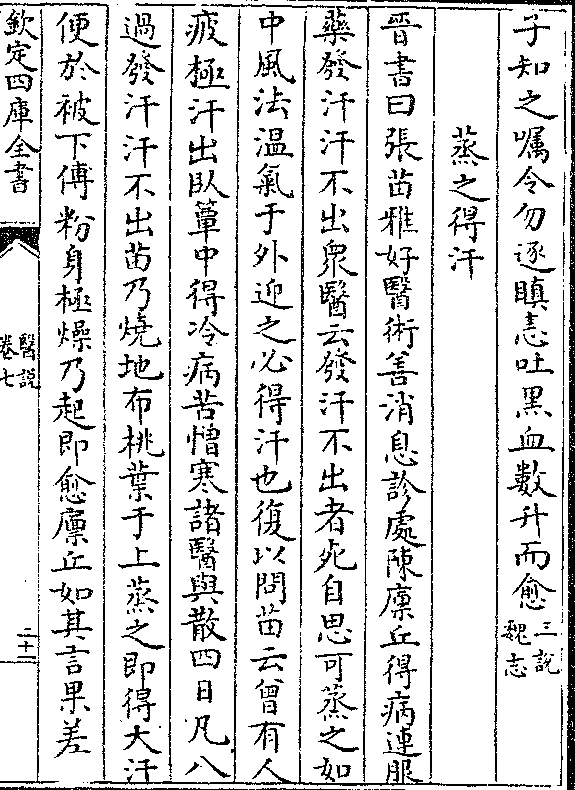 子知之嘱令勿逐瞋恚吐黒血數升而愈三說魏志
蒸之得汗
晉書曰張苗雅好醫術善消息診處陳廩丘得病連服
藥發汗汗不出衆醫云發汗不出者死自思可蒸之如
中風法温氣于外迎之必得汗也復以問苗云曾有人
疲極汗出臥簟中得冷病苦憎寒諸醫與散四日凡八
過發汗汗不出苗乃燒地布桃葉于上蒸之即得大汗
便於被下傅粉身極燥乃起即愈廩丘如其言果差
欽定四庫全書
醫說
卷七
二十二